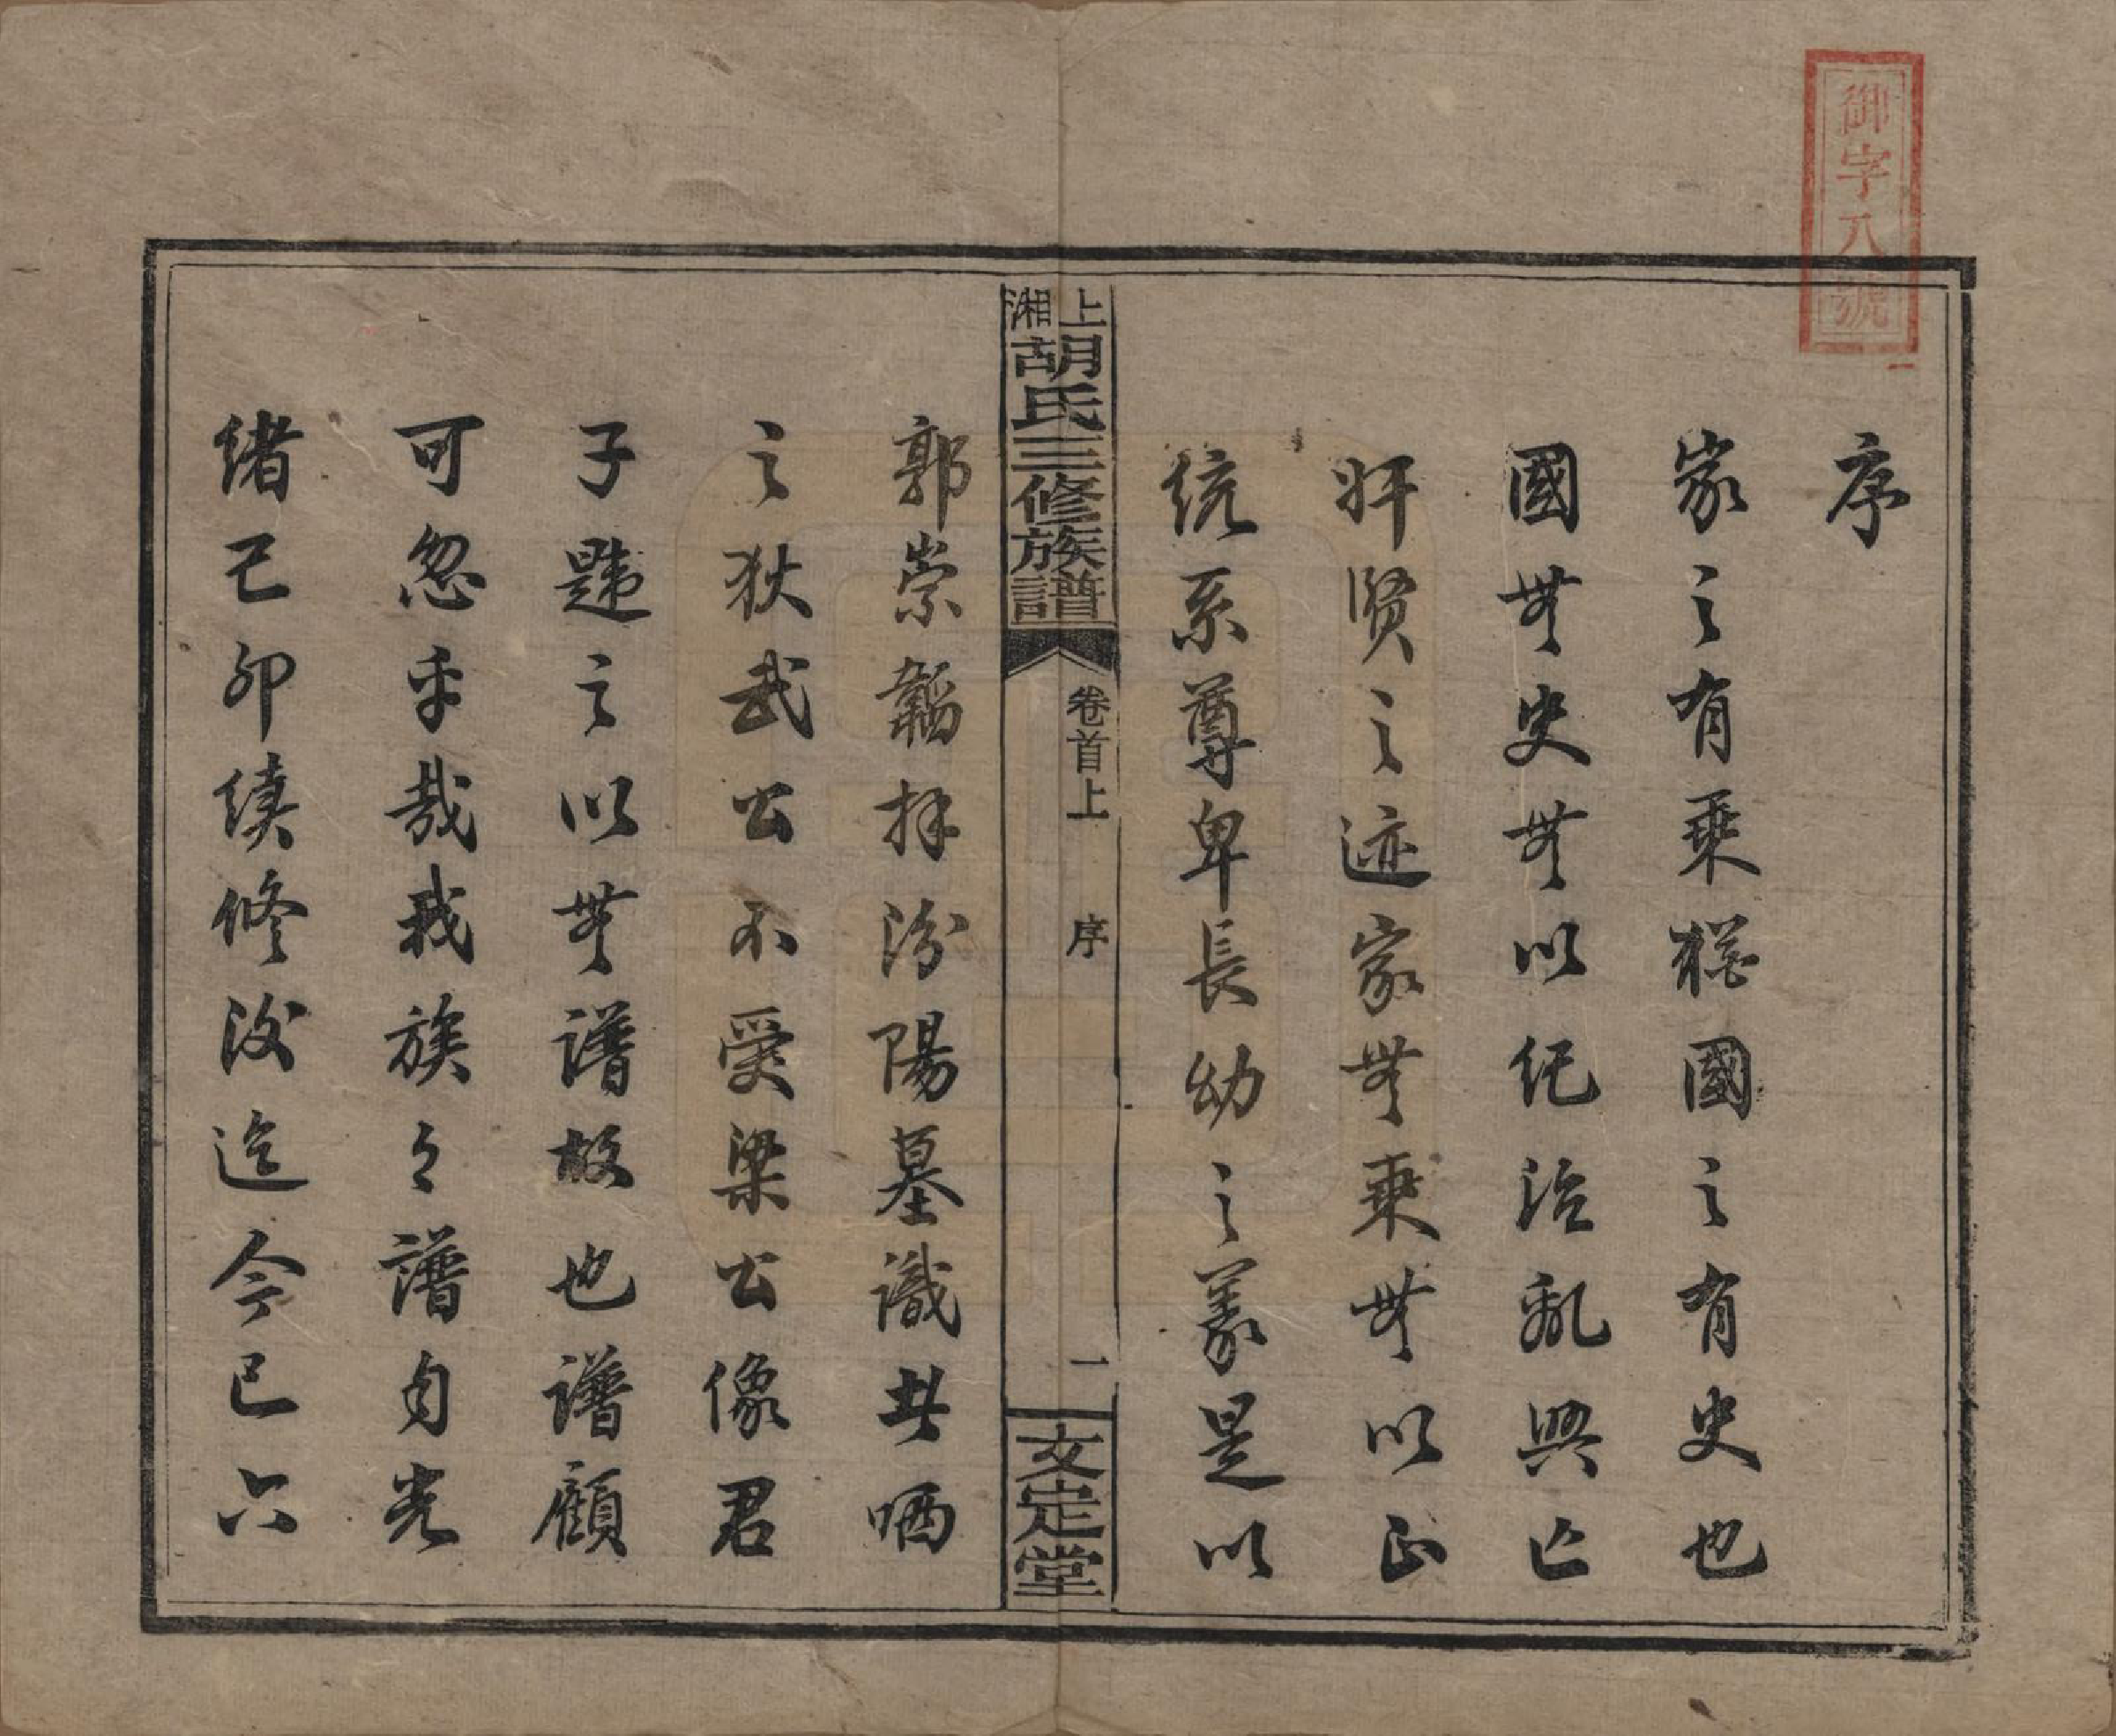 御字八號
序
家之有乘猶國之有史也
國無史無以紀治亂興亡
奸賢之迹家無乘無以正
統系尊卑長幼之義是以
上湘胡氏三修族譜
卷首上 序 一
文定堂
郭崇韜拜汾陽墓識共哂
之狄武公不受梁公像君
子韙之以無譜故也譜顧
可忽乎哉我族之譜自光
緒己卯續修後迄今已六